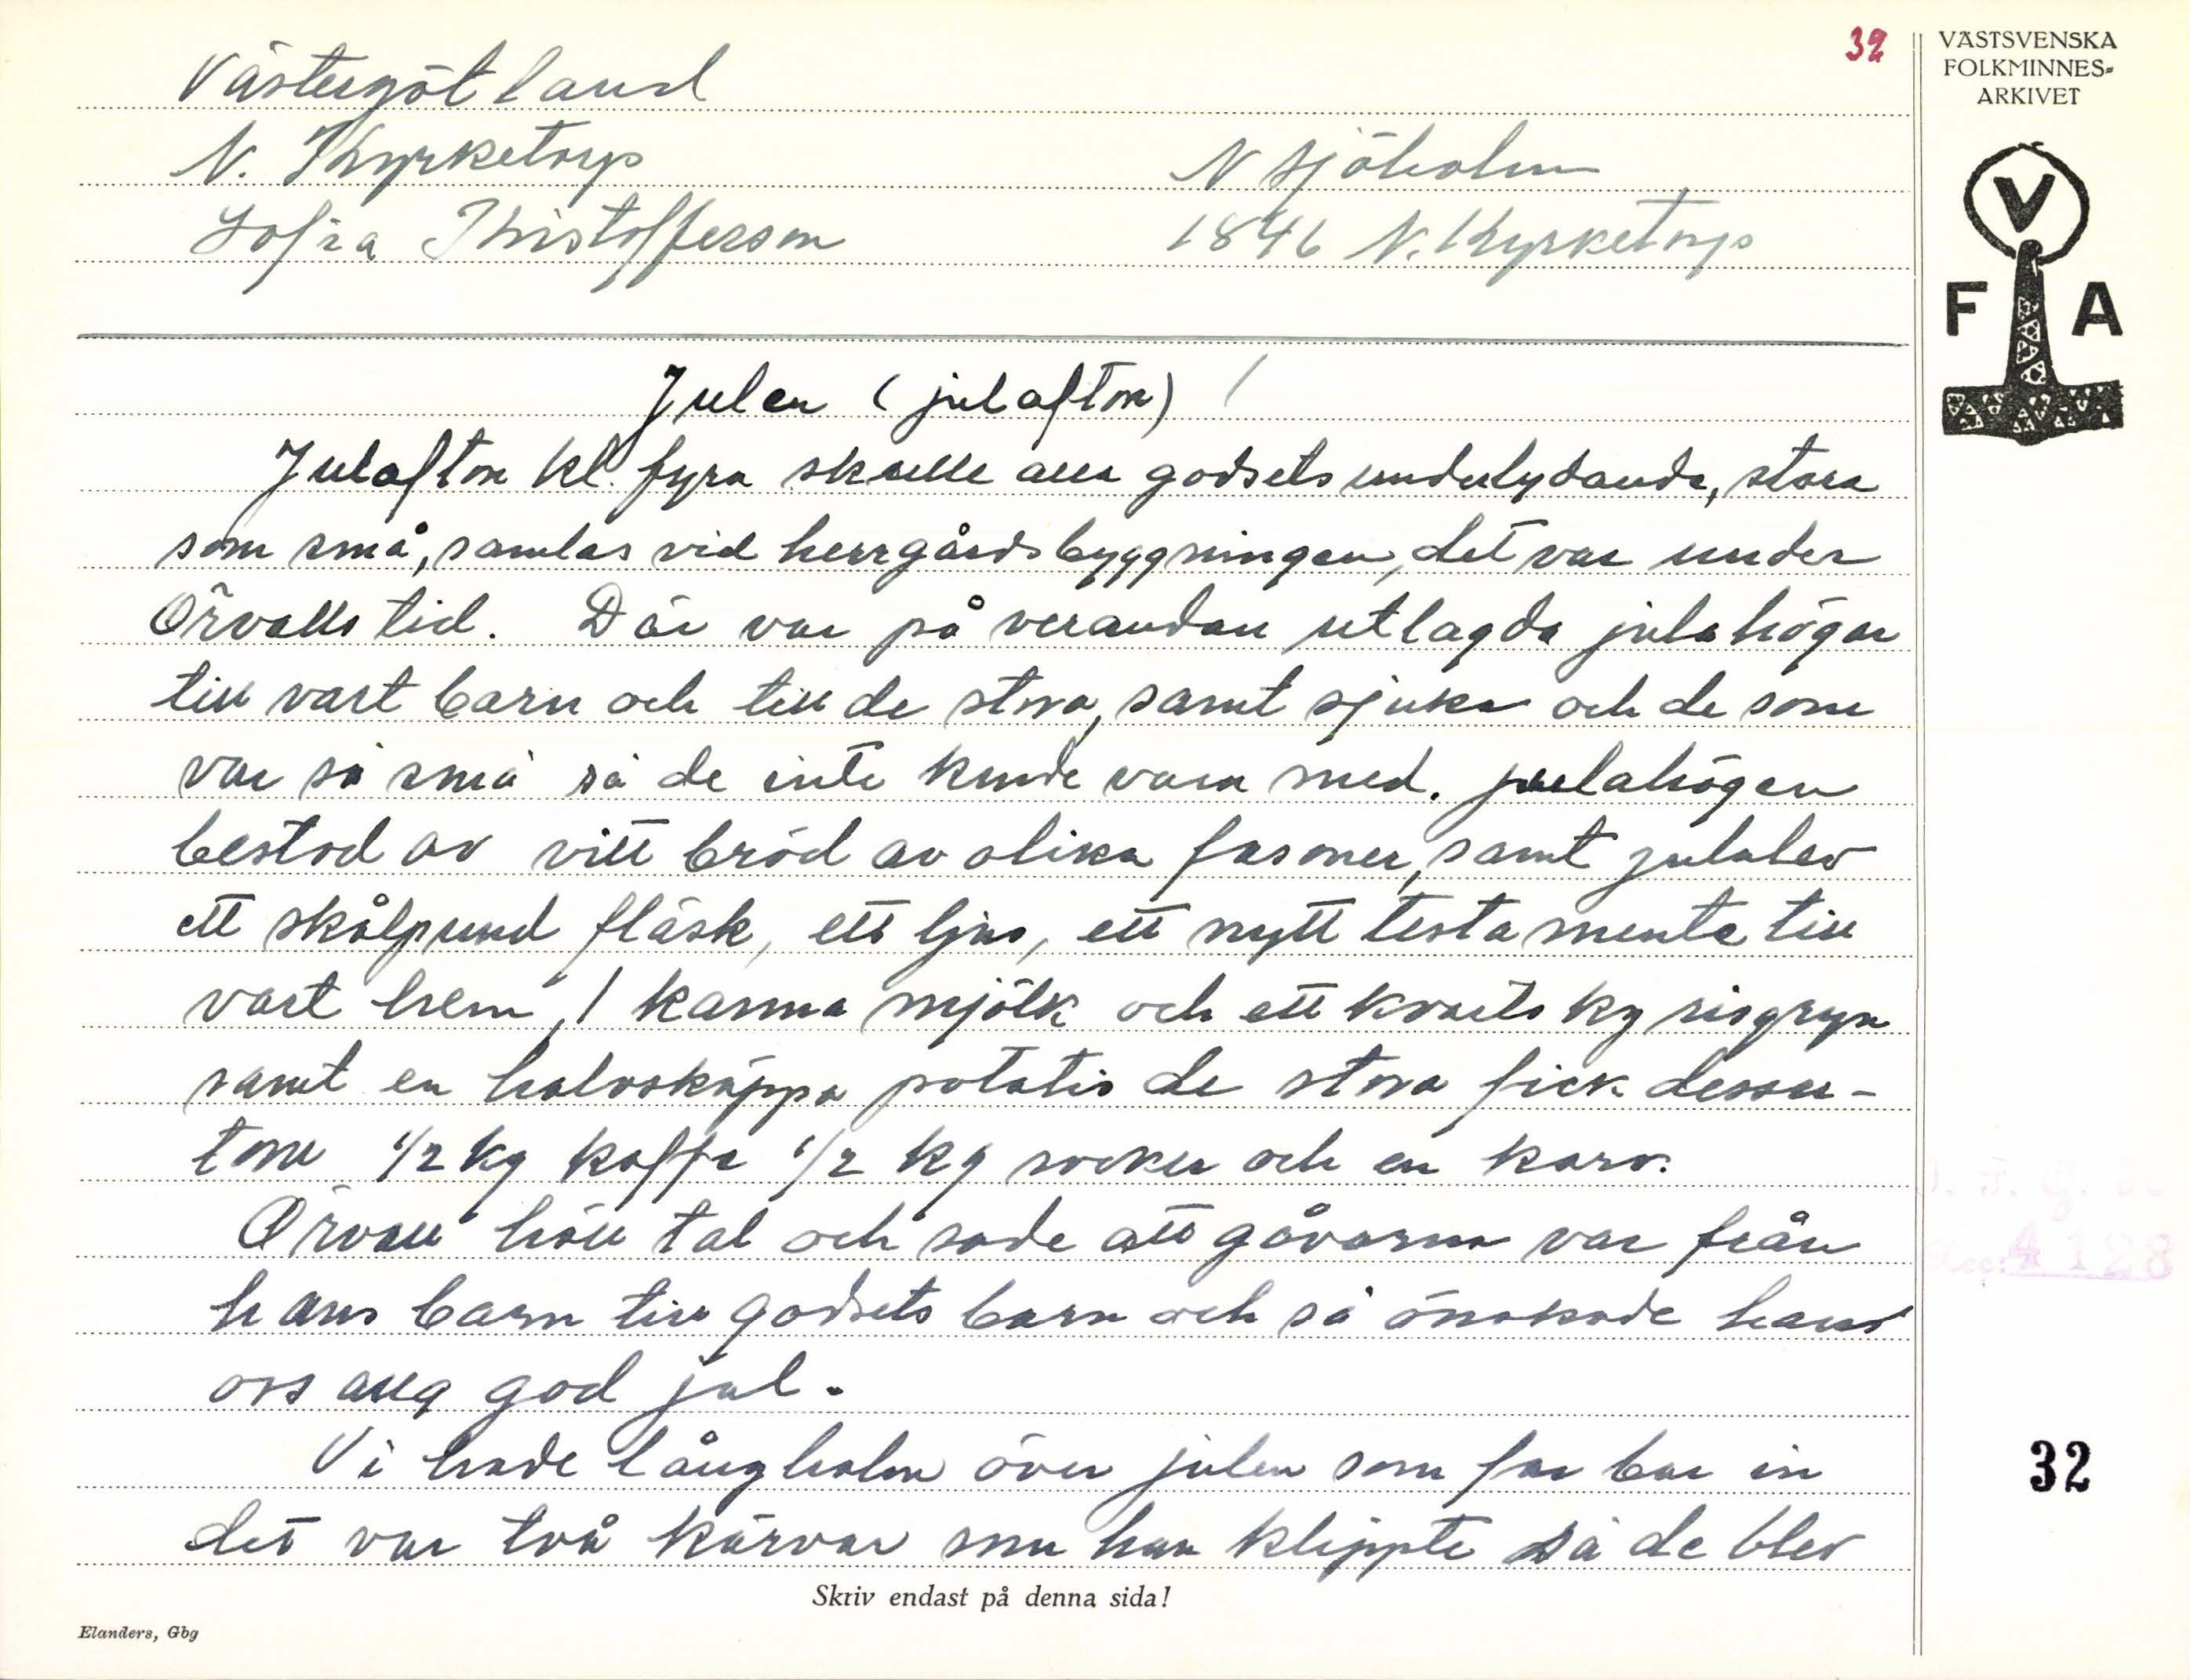 32
VÄSTSVENSKA
FOLKMINNES-
ARKIVET
V
F A
Västergötland
N. Kyrketorp
N Sjöholm
Sofia Kristofferson
1846 N. Kyrketorp
Julen (julafton)
Julafton kl. fyra skulle alla godsets underlydande, stora
som små, samlas vid herrgårdsbyggningen, det var under
Örvalls tid. Där var på verandan utlagda julahögar
till vart barn och till de stora, samt sjuka och de som
var så små så de inte kunde vara med. julahögen
bestod av vitt bröd av olika fasoner, samt julalev
ett skålpund fläsk, ett ljus, ett nytt testamente till
vart hem, 1 kanna mjölk och ett kvarts kg risgryn
samt en halvskäppa potatis de stora fick dessu-
tom 1/2 kg kaffe 1/2 kg socker och en korv.
Örvall höll tal och sade att gåvorna var från
hans barn till godsets barn och så önskade han
oss alla god jul.
Vi hade långhalm över julen som far bar in
det var två kärvar som han klippte så de blev
Skriv endast på denna sida!
Elanders, Gbg
4128
32